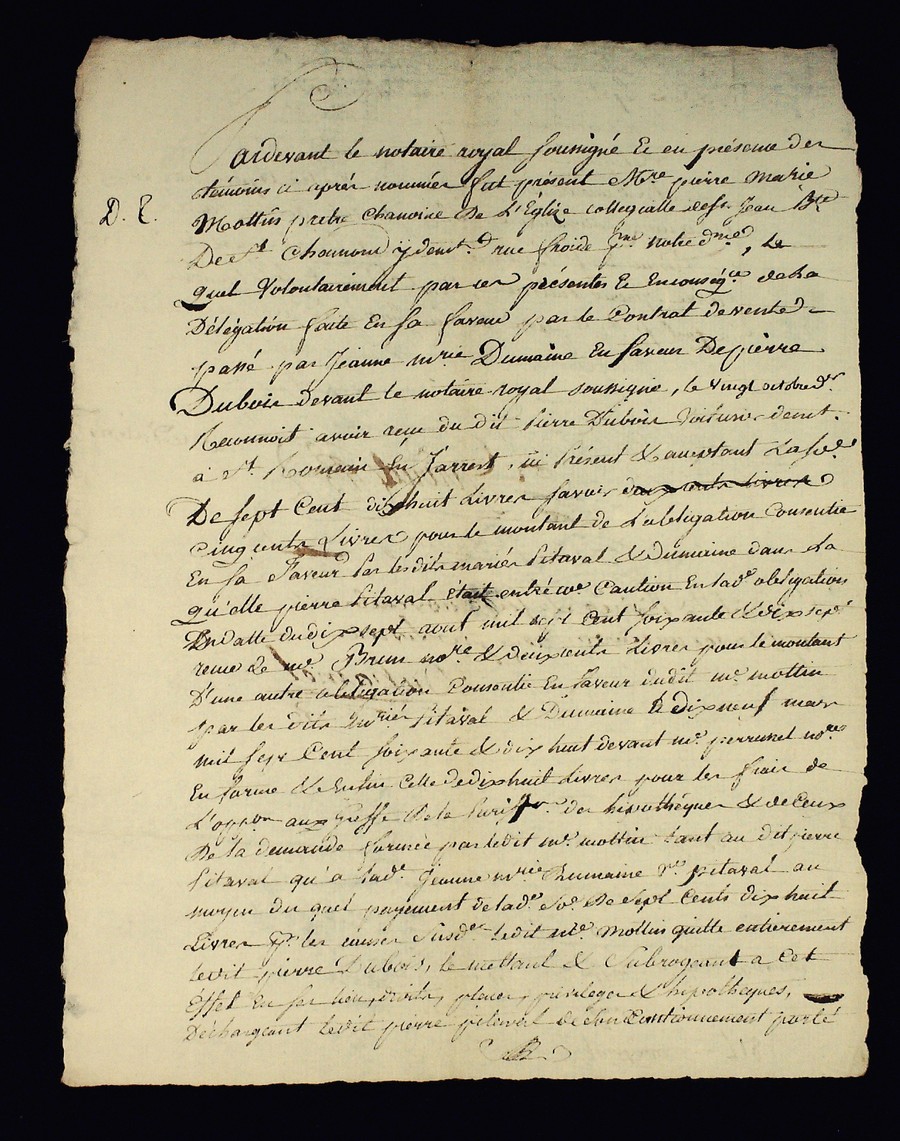 Pardevant le notaire royal soussigné Et en présence des
D. E.
témoins ci après nommés fut présent Mre pierre Marie
Mottin pretre Chanoine De L'Eglize collegialle de st Jean Bte
De st Chamond y demt. rue froide psse notre dme, Le
quel Volontairement par ces présentes Et En conséqce de la
Délégation faite En sa faveur par le Contrat de vente
passé par Jeanne mrie Dumaine En faveur De pierre
Dubois devant le notaire royal soussigné, le vingt octobre dr
Reconnoit avoir reçu du dit Pierre Dubois Voiturier demt.
à St. Romain En Jarrest, ici Présent & acceptant La so.e
De sept Cent dix huit Livres savoir
cinq cents Livres pour le montant de L'obligation Consentie
En sa faveur Par les dits mariés Pitaval & Dumaine dans La
qu'elle pierre Pitaval était entré coe Caution En lad.e obligation
En datte du dix sept aout mil sept Cent soixante & dix sept
reçue de me. Brun nore & deux cents Livres pour le montant
D'une autre obligation Consentie En faveur dudit mre mottin
par les dits mariés Pitaval & Dumaine le dix neuf mars
mil sept Cent soixante & dix huit devant me perrunel nore
En forme & Enfin Celle de dix huit Livres pour les frais de
L'oppon aux Greffe De la des hipothèques & de Ceux
De la demande formée par ledit mre mottin tant au dit pierre
Pitaval qu'à lade. Jeanne mrie Dumaine pitaval au
moyen du quel payement de lad.e so.e De sept Cents dix huit
Livres pr. les causes susd.es ledit mre. Mottin quitte entierement
ledit pierre Dubois, le mettant & Subrogeant a Cet
Effet En ses lieu, droits, places, privileges & hipothèques,
Déchargeant ledit pierre pitaval de son Cautionnement porté